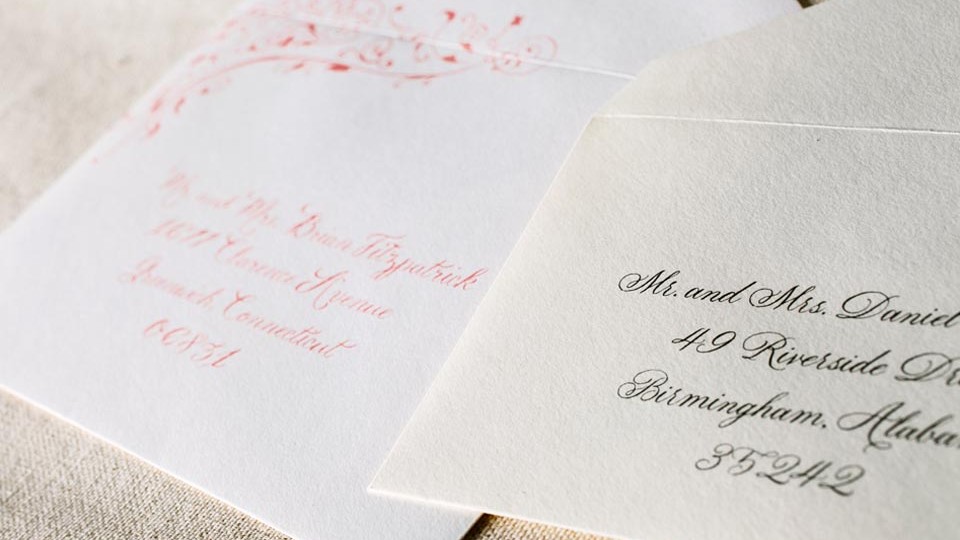 Mr. and Mrs. Brian Fitzpatrick
1677 Clarence Avenue
Greenwich, Connecticut
06831
Mr. and Mrs. Daniel
49 Riverside
Birmingham, Alaba
35242